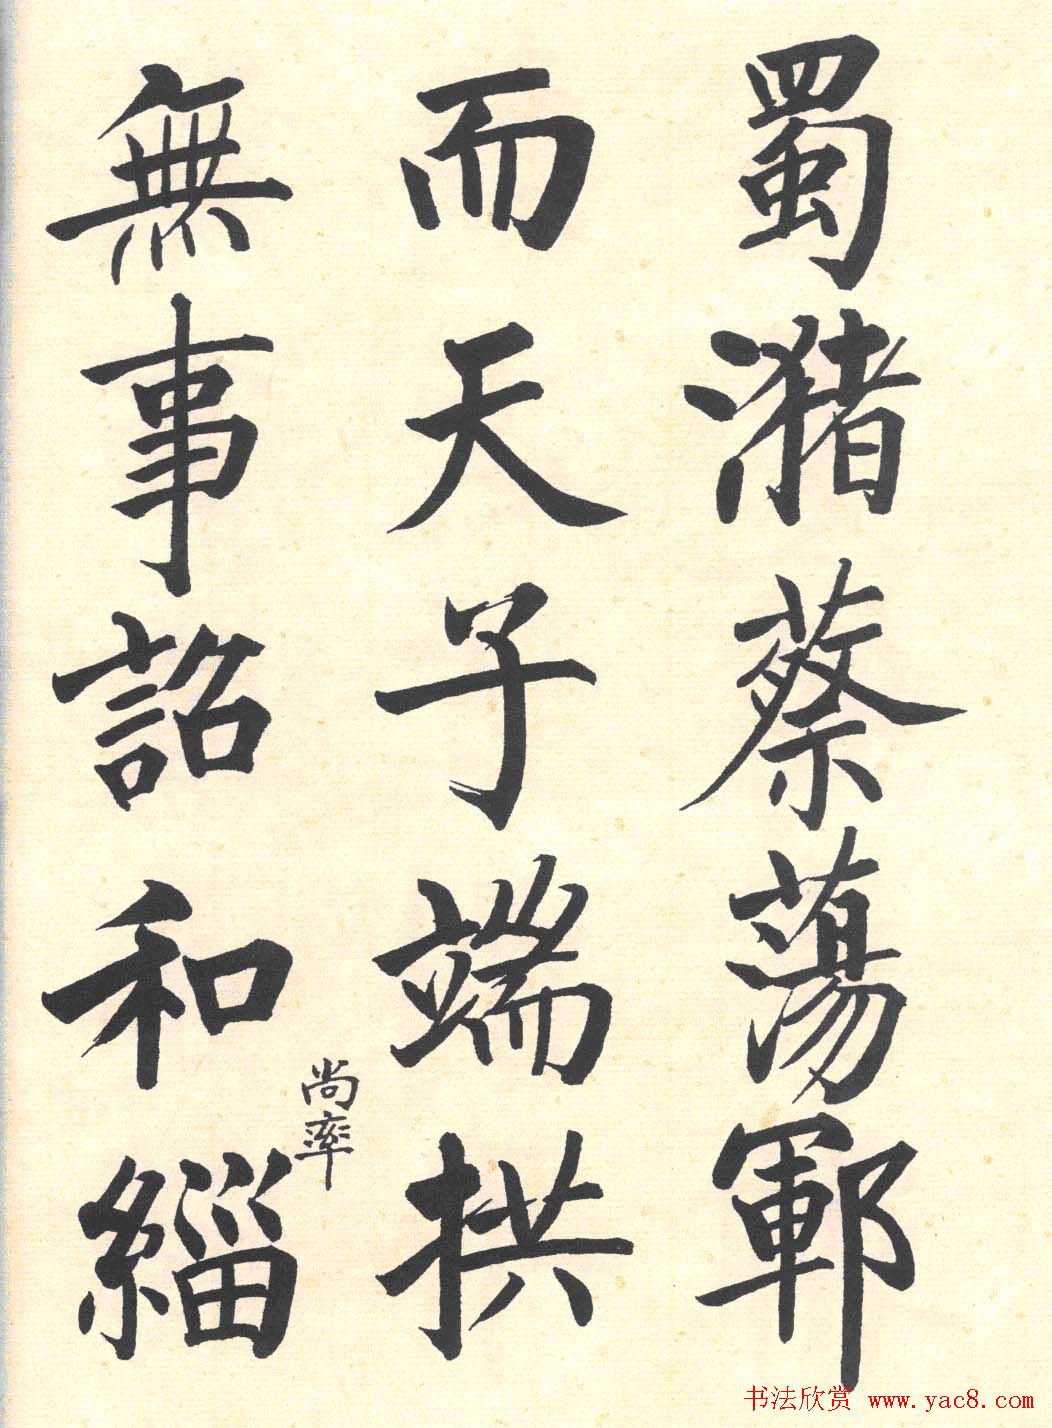 蜀瀦蔡蕩鄆
而天子端拱
無事詔和緇
尚率
书法欣赏 www.yac8.com